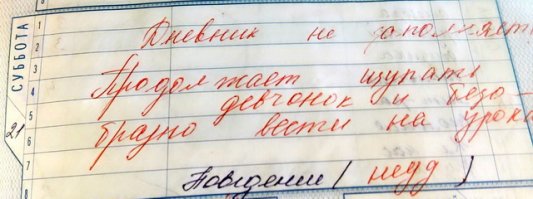 СУББОТА
21
1
2
3
4
5
6
7
8
Дневник не заполняет
Продолжает щупать
девчонок и безо-
бразно вести на урока
Поведение (неуд)